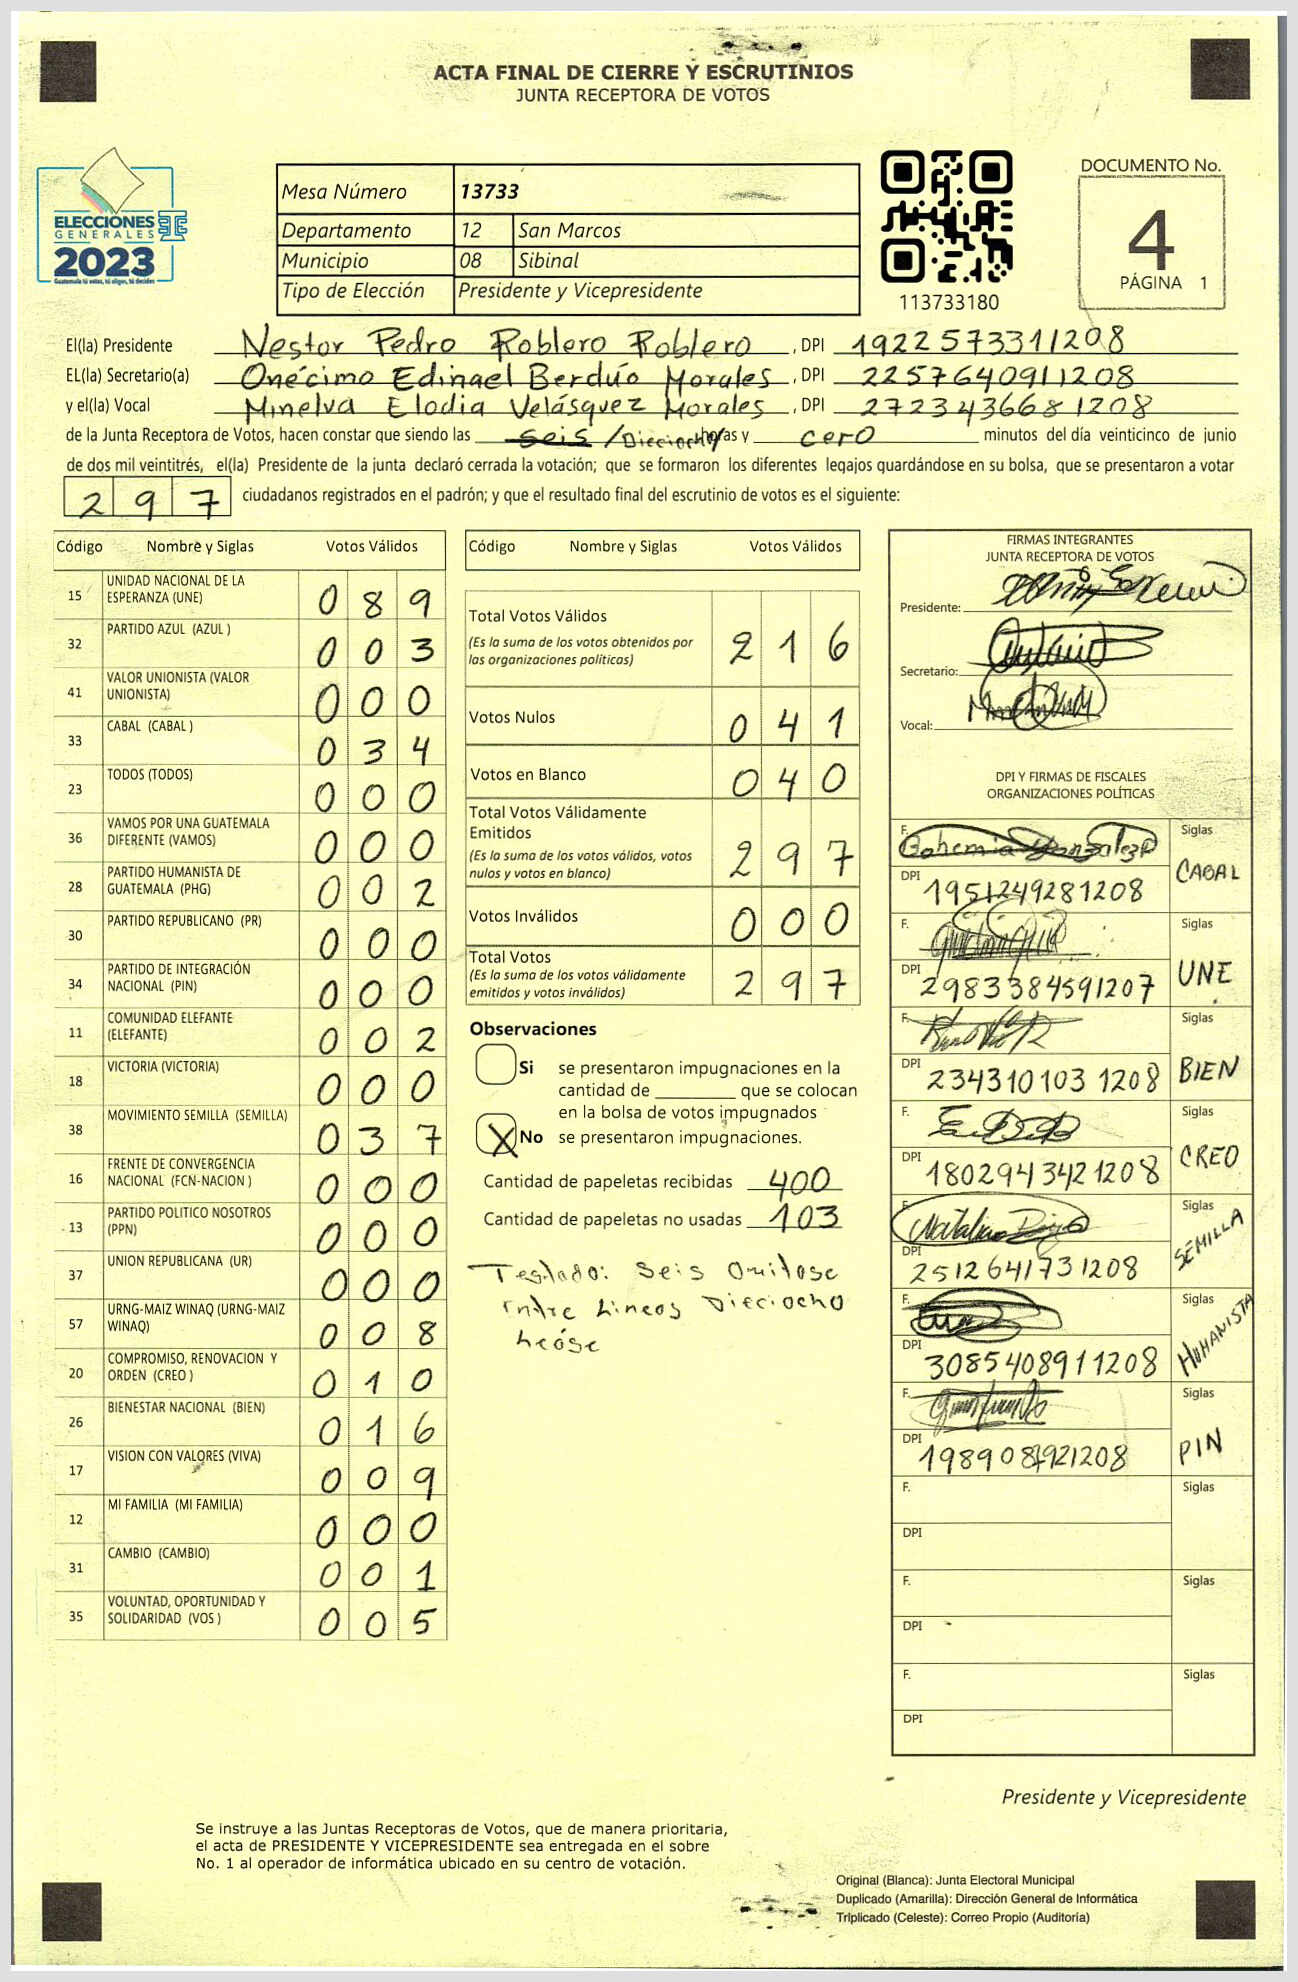 ACTA FINAL DE CIERRE Y ESCRUTINIOS
JUNTA RECEPTORA DE VOTOS
ELECCIONES
GENERALES
2023
Guatemala tú votas, tú eliges, tú decides
Mesa Número 13733
Departamento 12 San Marcos
Municipio 08 Sibinal
Tipo de Elección Presidente y Vicepresidente
113733180
DOCUMENTO No.
4
PÁGINA 1
El(la) Presidente Nestor Pedro Roblero Roblero , DPI 1922573311208
EL(la) Secretario(a) Onécimo Edinael Berdúo Morales , DPI 2257640911208
y el(la) Vocal Minelva Elodia Velásquez Morales , DPI 2723436681208
de la Junta Receptora de Votos, hacen constar que siendo las seis /Dieciocho/ horas y cero minutos del día veinticinco de junio
de dos mil veintitrés, el(la) Presidente de la junta declaró cerrada la votación; que se formaron los diferentes legajos guardándose en su bolsa, que se presentaron a votar
297 ciudadanos registrados en el padrón; y que el resultado final del escrutinio de votos es el siguiente:
Código Nombre y Siglas Votos Válidos
15 UNIDAD NACIONAL DE LA ESPERANZA (UNE) 089
32 PARTIDO AZUL (AZUL ) 003
41 VALOR UNIONISTA (VALOR UNIONISTA) 000
33 CABAL (CABAL ) 034
23 TODOS (TODOS) 000
36 VAMOS POR UNA GUATEMALA DIFERENTE (VAMOS) 000
28 PARTIDO HUMANISTA DE GUATEMALA (PHG) 002
30 PARTIDO REPUBLICANO (PR) 000
34 PARTIDO DE INTEGRACIÓN NACIONAL (PIN) 000
11 COMUNIDAD ELEFANTE (ELEFANTE) 002
18 VICTORIA (VICTORIA) 000
38 MOVIMIENTO SEMILLA (SEMILLA) 037
16 FRENTE DE CONVERGENCIA NACIONAL (FCN-NACION ) 000
13 PARTIDO POLITICO NOSOTROS (PPN) 000
37 UNION REPUBLICANA (UR) 000
57 URNG-MAIZ WINAQ (URNG-MAIZ WINAQ) 008
20 COMPROMISO, RENOVACION Y ORDEN (CREO ) 010
26 BIENESTAR NACIONAL (BIEN) 016
17 VISION CON VALORES (VIVA) 009
12 MI FAMILIA (MI FAMILIA) 000
31 CAMBIO (CAMBIO) 001
35 VOLUNTAD, OPORTUNIDAD Y SOLIDARIDAD (VOS ) 005
Código Nombre y Siglas Votos Válidos
Total Votos Válidos 216
(Es la suma de los votos obtenidos por
las organizaciones políticas)
Votos Nulos 041
Votos en Blanco 040
Total Votos Válidamente
Emitidos 297
(Es la suma de los votos válidos, votos
nulos y votos en blanco)
Votos Inválidos 000
Total Votos 297
(Es la suma de los votos válidamente
emitidos y votos inválidos)
Observaciones
Si se presentaron impugnaciones en la
cantidad de ________ que se colocan
en la bolsa de votos impugnados
X No se presentaron impugnaciones.
Cantidad de papeletas recibidas 400
Cantidad de papeletas no usadas 103
Testado: Seis Omitase
Entre Lineas Dieciocho
Leáse
FIRMAS INTEGRANTES
JUNTA RECEPTORA DE VOTOS
Presidente:
Secretario:
Vocal:
DPI Y FIRMAS DE FISCALES
ORGANIZACIONES POLÍTICAS
F. Bohemia Gonzalez Siglas
DPI 1951249281208 CABAL
F. Siglas
DPI 2983384591207 UNE
F. Siglas
DPI 2343101031208 BIEN
F. Siglas
DPI 1802943421208 CREO
F. Siglas
DPI 2512641731208 SEMILLA
F. Siglas
DPI 3085408911208 HUMANISTA
F. Siglas
DPI PIN
F. Siglas
DPI
F. Siglas
DPI
F. Siglas
DPI
Presidente y Vicepresidente
Se instruye a las Juntas Receptoras de Votos, que de manera prioritaria,
el acta de PRESIDENTE Y VICEPRESIDENTE sea entregada en el sobre
No. 1 al operador de informática ubicado en su centro de votación.
Original (Blanca): Junta Electoral Municipal
Duplicado (Amarilla): Dirección General de Informática
Triplicado (Celeste): Correo Propio (Auditoría)